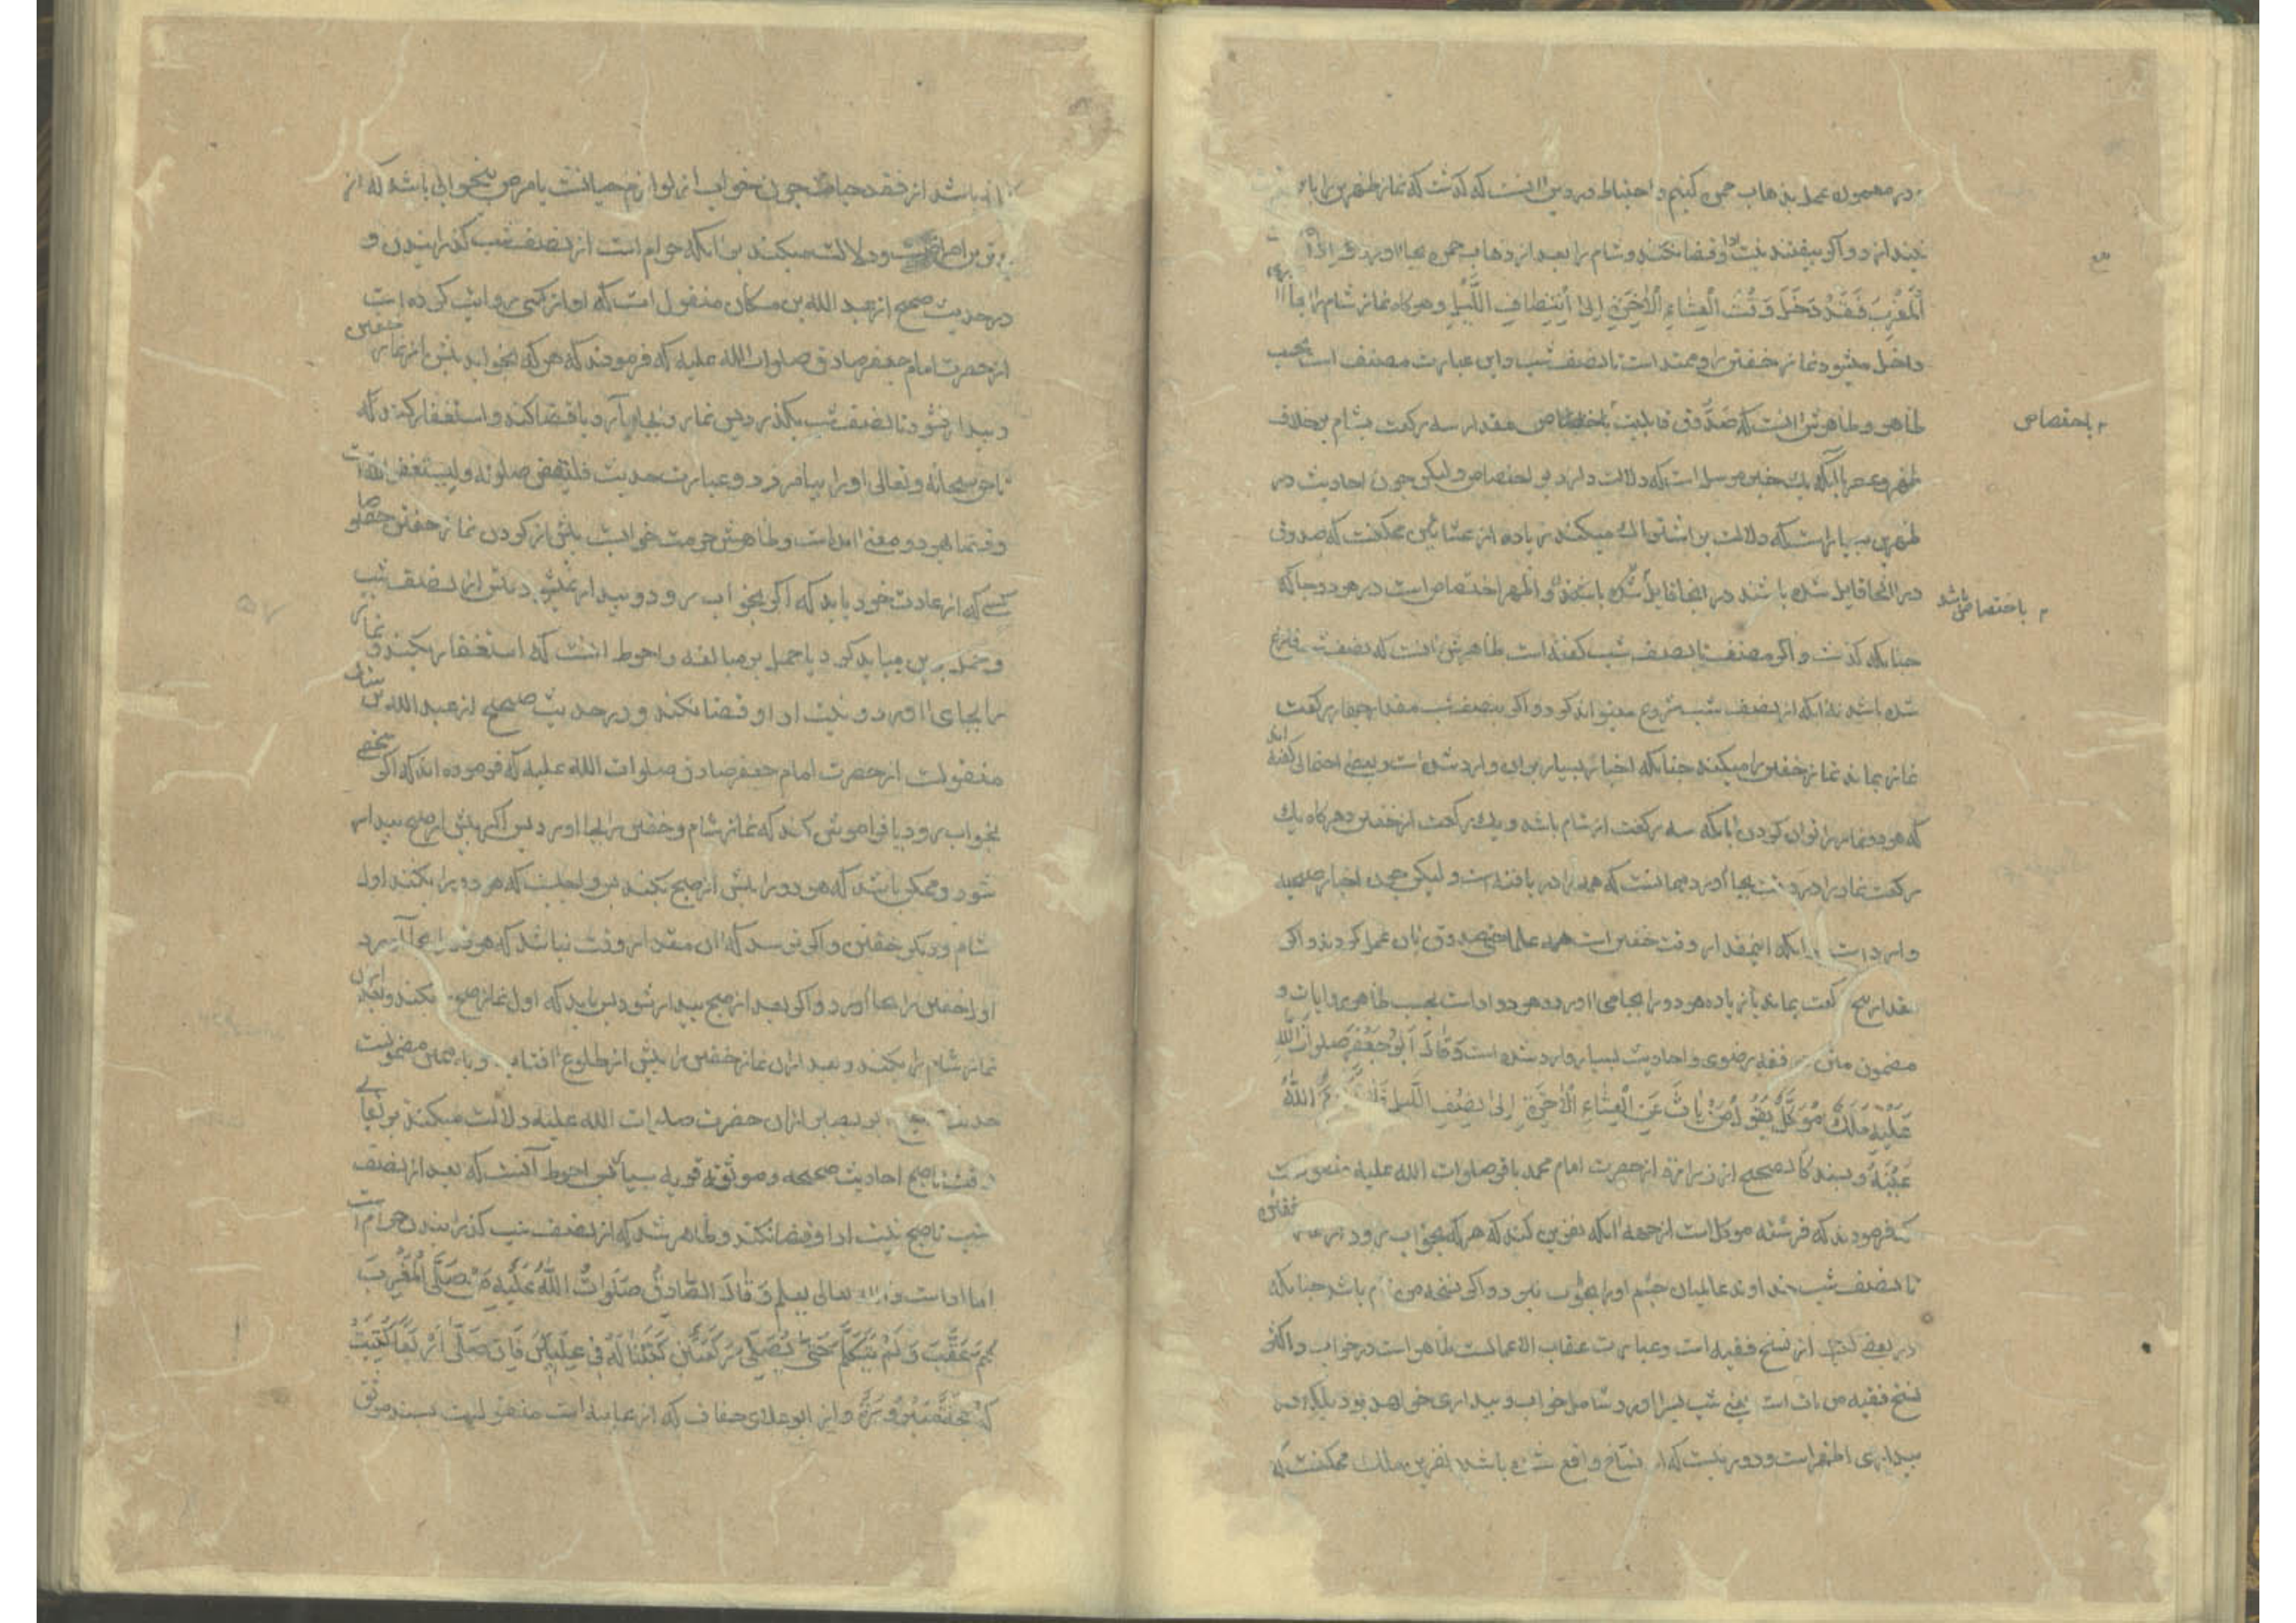 در معمول عمل بذهاب حمره کنیم و احتیاط در دین آنست که گذشت که نماز ظهرین را با
بیندازد و اگر بیفتند نیت ادا و قضا نکند و شام را بعد از ذهاب حمره بجا آورد
الْمَغْرِبَ فَقَدْ دَخَلَ وَقْتُ الْعِشَاءِ الْآخِرَةِ إِلَىٰ انْتِصَافِ اللَّیْلِ و هرگاه نماز شام را بجا
داخل میشود نماز خفتن را و ممتد است تا نصف شب و این عبارت مصنف است بحسب
ظاهر و ظاهرش آنست که صدوق قایلست باختصاص مقدار سه رکعت بشام بخلاف
باختصاص
ظهر و عصر با آنکه یک خبر مرسل است که دلالت دارد بر اختصاص و لیکن چون احادیث در
ظهرین بسیار است که دلالت بر اشتراک میکند زیاده از عشائین ممکنست که صدوق
در آنجا قایل شده باشند در اینجا قایل شده باشند و اظهر اختصاص است در هر دو جا که
باختصاص باشد
چنانکه گذشت و اگر مصنف تا نصف شب گفته است ظاهرش آنست که نصف شب فارغ
شده باشد نه آنکه از نصف شب شروع میتواند کرد و اگر بنصف شب مقدار چهار رکعت
نماز بماند نماز خفتن را میکند چنانکه اخبار بسیار بر آن وارد شده است و بعضی احتمالی گفته اند
که هر دو نماز را توان کردن بآنکه سه رکعت از شام باشد و یک رکعت از خفتن و هرگاه یک
رکعت نماز را در وقت بجا آورد چنانست که همه را دریافته است و لیکن چون اخبار صحیحه
وارد است بر آنکه اینمقدار وقت خفتن است همه علما حتی صدوق بآن عمل کردند و اگر
مقدار پنج رکعت بماند یا زیاده هر دو را بجا می آورد و هر دو ادا است بحسب ظاهر روایات و
مضمون متن فقه رضوی و احادیث بسیار وارد شده است وَ قَالَ أَبُو جَعْفَرٍ صَلَوَاتُ اللَّهِ
عَلَیْهِ مَلَکٌ مُوَکَّلٌ یَقُولُ مَنْ بَاتَ عَنِ الْعِشَاءِ الْآخِرَةِ إِلَىٰ نِصْفِ اللَّیْلِ فَلَا اللَّهُ
عَیْنَهُ و بسند کالصحیح از زراره از حضرت امام محمد باقر صلوات الله علیه منقولست
که فرمودند که فرشته موکل است از جهة آنکه نفرین کند که هر که بخواب رود از نماز خفتن
تا نصف شب خداوند عالمیان چشم او را بخواب نبرد و اگر نسخه من نام باشد چنانکه
در بعضی کتب از نسخ فقیه است و عبارت عقاب الاعمالست ظاهر است در خواب و اکثر
نسخ فقیه من بات است یعنی شب بسر آورد شامل خواب و بیداری خواهد بود بلکه در
بیداری اظهر است و دور نیست که از نساخ واقع شده باشد نفرین ملک ممکنست که
باشد از فقد حیات چون خواب از لوازم حیاتست یا مرض بیخوابی باشد که از
بدترین امراضست و دلالت میکند بر آنکه حرام است از نصف شب گذرانیدن و
در حدیث صحیح از عبد الله بن مسکان منقول است که او از کسی روایت کرده است
از حضرت امام جعفر صادق صلوات الله علیه که فرمودند که هر که بخوابد پیش از نماز خفتن
و بیدار نشود تا نصف شب بگذرد پس نماز را بجا آرد یا قضا کند و استغفار کند که
تا حق سبحانه و تعالی او را بیامرزد و عبارت حدیث فلیقض صلوته و لیستغفر الله است
و قضا بهر دو معنی آمده است و ظاهرش حرمت خوابست پیش از کردن نماز خفتن خصوصا
کسی که از عادت خود یابد که اگر بخواب رود و بیدار نمیشود پیش از نصف شب
و حمل برین میباید کرد یا حمل بر مبالغه و احوط آنست که استغفار بکند و نماز
را بجای آورد و نیت ادا و قضا نکند و در حدیث صحیح از عبد الله بن سنان
منقولست از حضرت امام جعفر صادق صلوات الله علیه که فرموده اند که اگر شخصی
بخواب رود یا فراموش کند که نماز شام و خفتن را بجا آورد پس اگر پیش از صبح بیدار
شود و ممکن باشد که هر دو را پیش از صبح بکند پس واجبست که هر دو را بکند اول
شام و دیگر خفتن و اگر ترسد که آن مقدار وقت نباشد که هر دو را بجا آورد
اول خفتن را بجا آورد و اگر بعد از صبح بیدار شود پس باید که اول نماز صبح بکند و بعد از آن
نماز شام را بکند و بعد از آن نماز خفتن را پیش از طلوع آفتاب و بهمین مضمونست
حدیث ابو بصیر از آن حضرت صلوات الله علیه دلالت میکند بر بقای
وقت تا صبح احادیث صحیحه و موثقه قویه بسیار پس احوط آنست که بعد از نصف
شب تا صبح نیت ادا و قضا نکند و ظاهر شد که از نصف شب گذرانیدن حرام است
اما ادا است و الله تعالی یعلم وَ قَالَ الصَّادِقُ صَلَوَاتُ اللَّهِ عَلَیْهِ مَنْ صَلَّى الْمَغْرِبَ
ثُمَّ عَقَّبَ وَ لَمْ یَتَکَلَّمْ حَتَّىٰ یُصَلِّیَ رَکْعَتَیْنِ کُتِبَتَا لَهُ فِی عِلِّیِّینَ فَإِنْ صَلَّىٰ أَرْبَعاً کُتِبَتْ
لَهُ حَجَّةٌ مَبْرُورَةٌ و از ابو علای خفاف که از عامه است منقولست بسند موثق